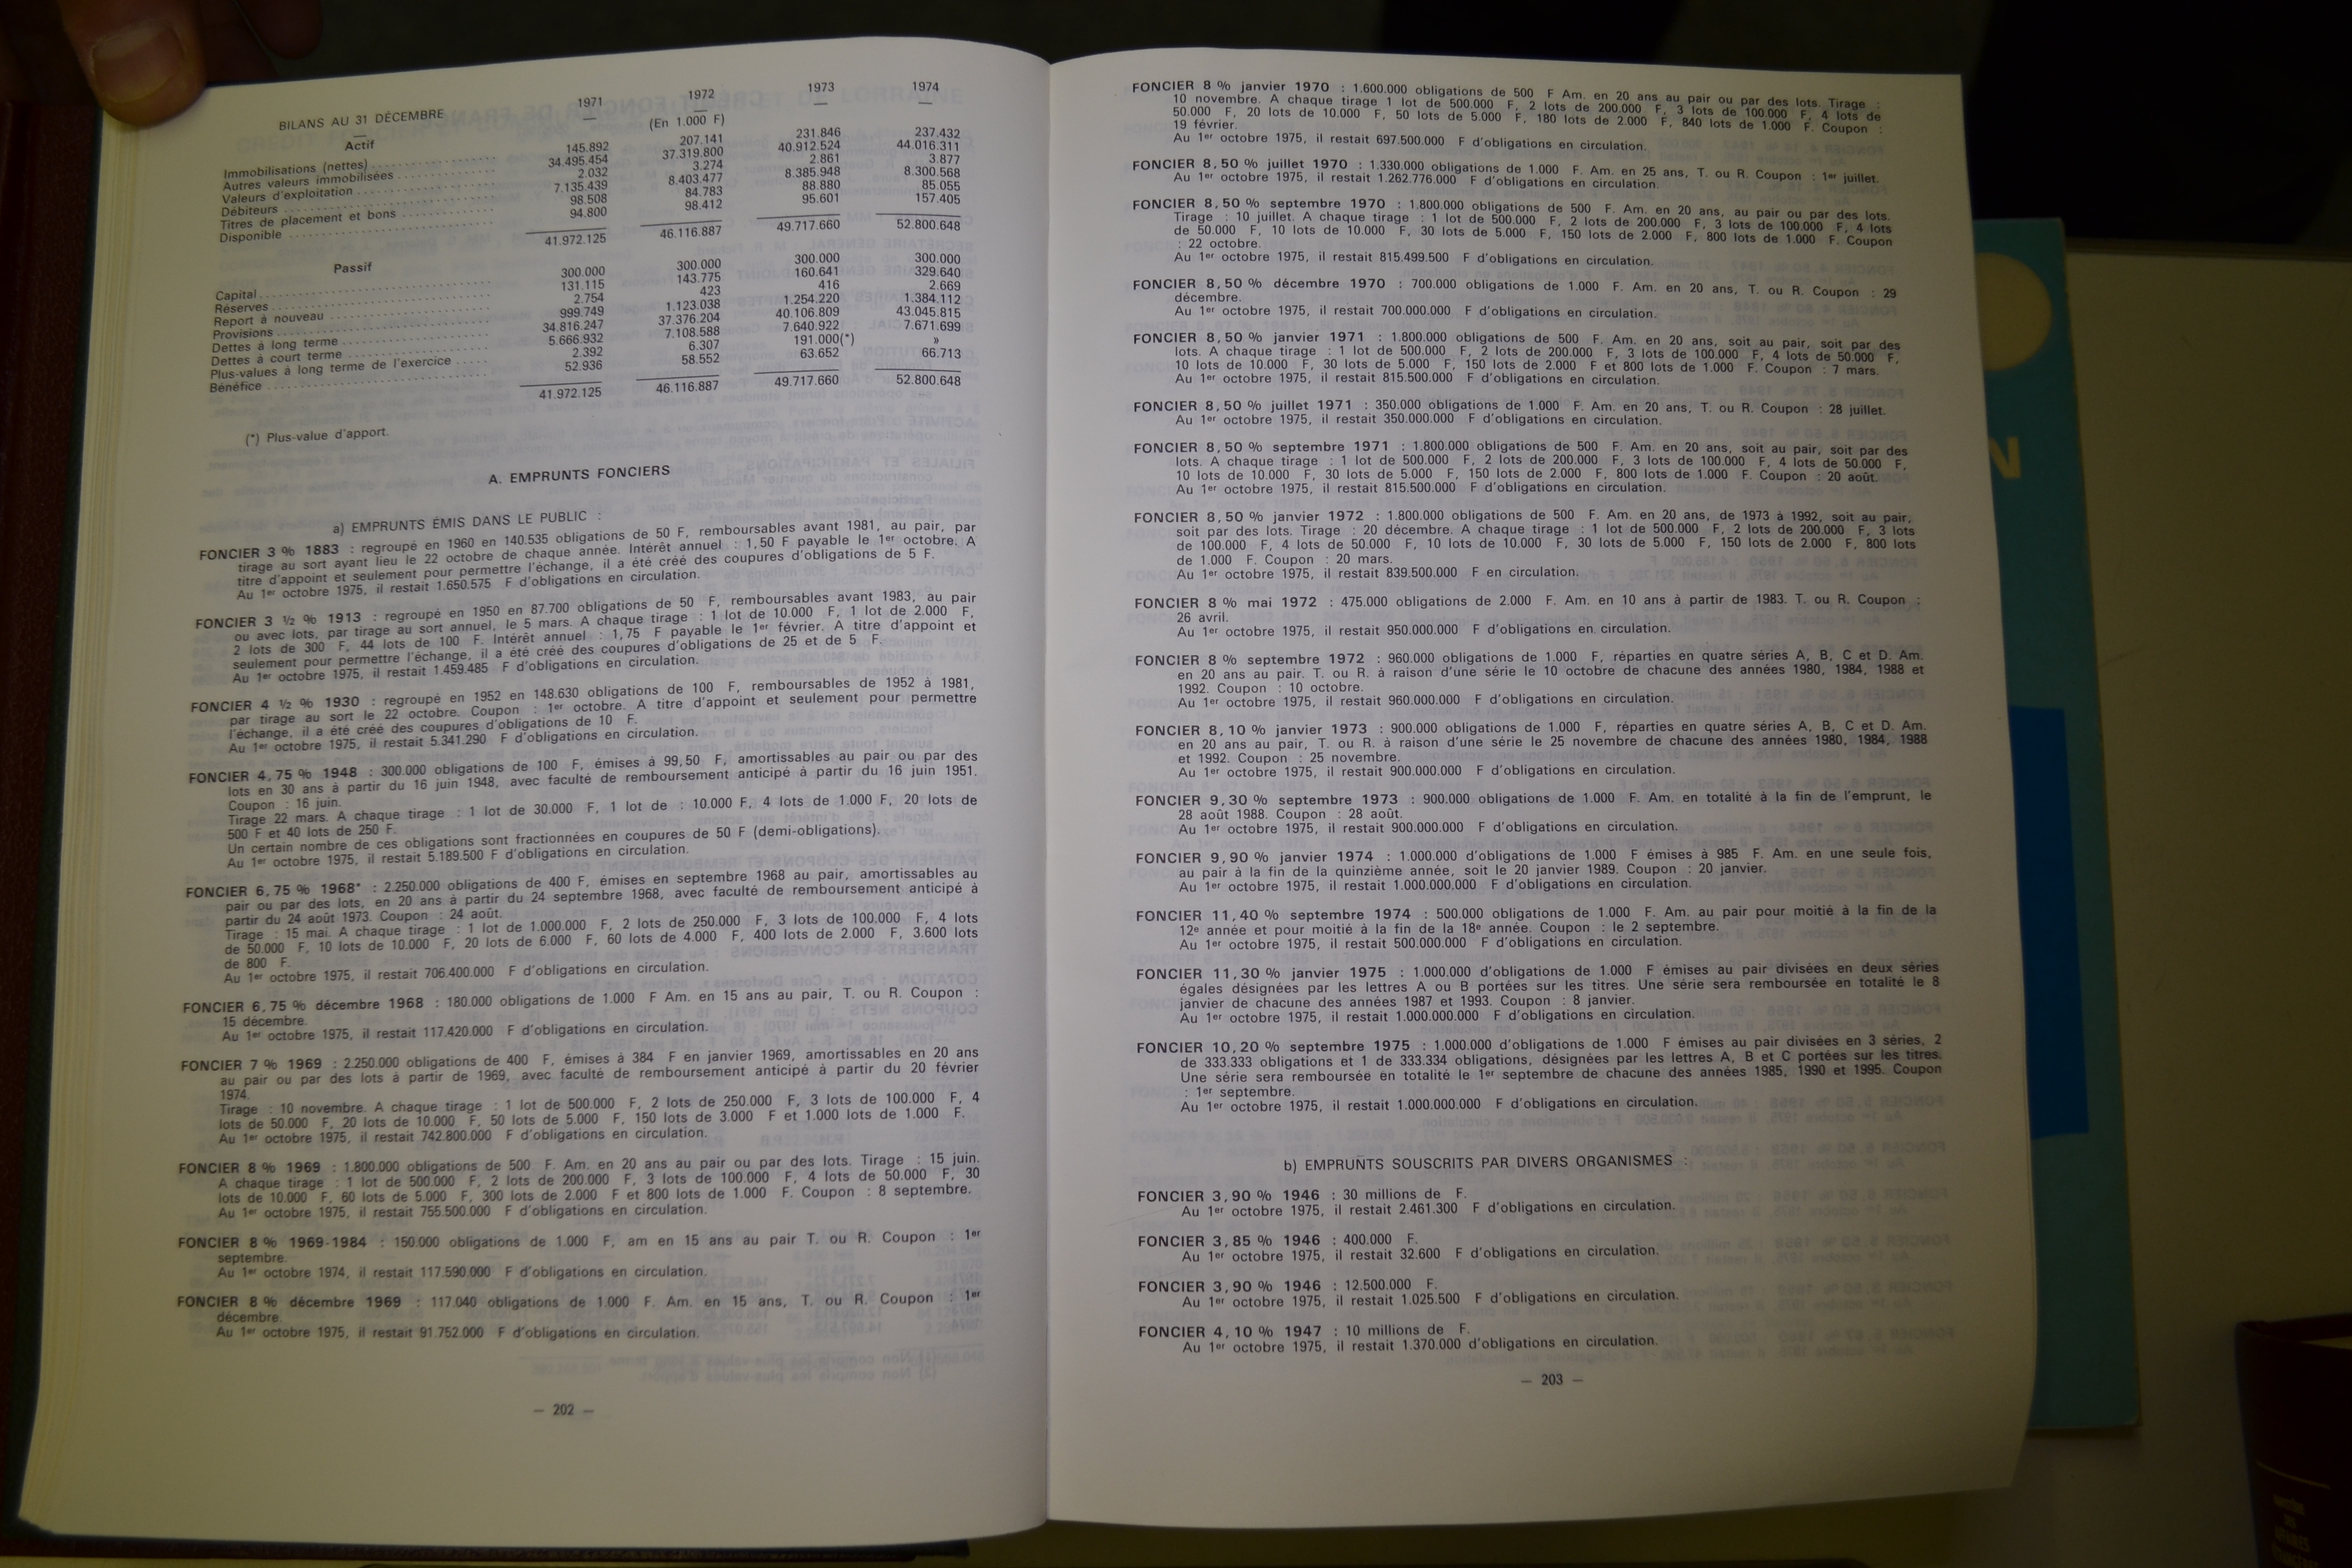 BILANS AU 31 DÉCEMBRE 1971 1972 1973 1974
— — — — —
(En 1.000 F)
Actif
Immobilisations (nettes) 145.892 207.141 231.846 237.432
Autres valeurs immobilisées 34.495.454 37.319.800 40.912.524 44.016.311
Valeurs d'exploitation 2.032 3.274 2.861 3.877
Débiteurs 7.135.439 8.403.477 8.385.948 8.300.568
Titres de placement et bons 98.508 84.783 88.880 85.055
Disponible 94.800 98.412 95.601 157.405
41.972.125 46.116.887 49.717.660 52.800.648
Passif
Capital 300.000 300.000 300.000 300.000
Réserves 131.115 143.775 160.641 329.640
Report à nouveau 2.754 423 416 2.669
Provisions 999.749 1.123.038 1.254.220 1.384.112
Dettes à long terme 34.816.247 37.376.204 40.106.809 43.045.815
Dettes à court terme 5.666.932 7.108.588 7.640.922 7.671.699
Plus-values à long terme de l'exercice 2.392 6.307 191.000(*) »
Bénéfice 52.936 58.552 63.652 66.713
41.972.125 46.116.887 49.717.660 52.800.648
(*) Plus-value d'apport.
A. EMPRUNTS FONCIERS
a) EMPRUNTS ÉMIS DANS LE PUBLIC :
FONCIER 3 % 1883 : regroupé en 1960 en 140.535 obligations de 50 F, remboursables avant 1981, au pair, par
tirage au sort ayant lieu le 22 octobre de chaque année. Intérêt annuel : 1,50 F payable le 1er octobre. A
titre d'appoint et seulement pour permettre l'échange, il a été créé des coupures d'obligations de 5 F.
Au 1er octobre 1975, il restait 1.650.575 F d'obligations en circulation.
FONCIER 3 ½ % 1913 : regroupé en 1950 en 87.700 obligations de 50 F, remboursables avant 1983, au pair
ou avec lots, par tirage au sort annuel, le 5 mars. A chaque tirage : 1 lot de 10.000 F, 1 lot de 2.000 F,
2 lots de 300 F, 44 lots de 100 F. Intérêt annuel : 1,75 F payable le 1er février. A titre d'appoint et
seulement pour permettre l'échange, il a été créé des coupures d'obligations de 25 et de 5 F.
Au 1er octobre 1975, il restait 1.459.485 F d'obligations en circulation.
FONCIER 4 ½ % 1930 : regroupé en 1952 en 148.630 obligations de 100 F, remboursables de 1952 à 1981,
par tirage au sort le 22 octobre. Coupon : 1er octobre. A titre d'appoint et seulement pour permettre
l'échange, il a été créé des coupures d'obligations de 10 F.
Au 1er octobre 1975, il restait 5.341.290 F d'obligations en circulation.
FONCIER 4,75 % 1948 : 300.000 obligations de 100 F, émises à 99,50 F, amortissables au pair ou par des
lots en 30 ans à partir du 16 juin 1948, avec faculté de remboursement anticipé à partir du 16 juin 1951.
Coupon : 16 juin.
Tirage 22 mars. A chaque tirage : 1 lot de 30.000 F, 1 lot de : 10.000 F, 4 lots de 1.000 F, 20 lots de
500 F et 40 lots de 250 F.
Un certain nombre de ces obligations sont fractionnées en coupures de 50 F (demi-obligations).
Au 1er octobre 1975, il restait 5.189.500 F d'obligations en circulation.
FONCIER 6,75 % 1968* : 2.250.000 obligations de 400 F, émises en septembre 1968 au pair, amortissables au
pair ou par des lots, en 20 ans à partir du 24 septembre 1968, avec faculté de remboursement anticipé à
partir du 24 août 1973. Coupon : 24 août.
Tirage : 15 mai. A chaque tirage : 1 lot de 1.000.000 F, 2 lots de 250.000 F, 3 lots de 100.000 F, 4 lots
de 50.000 F, 10 lots de 10.000 F, 20 lots de 6.000 F, 60 lots de 4.000 F, 400 lots de 2.000 F, 3.600 lots
de 800 F.
Au 1er octobre 1975, il restait 706.400.000 F d'obligations en circulation.
FONCIER 6,75 % décembre 1968 : 180.000 obligations de 1.000 F Am. en 15 ans au pair, T. ou R. Coupon :
15 décembre.
Au 1er octobre 1975, il restait 117.420.000 F d'obligations en circulation.
FONCIER 7 % 1969 : 2.250.000 obligations de 400 F, émises à 384 F en janvier 1969, amortissables en 20 ans
au pair ou par des lots à partir de 1969, avec faculté de remboursement anticipé à partir du 20 février
1974.
Tirage : 10 novembre. A chaque tirage : 1 lot de 500.000 F, 2 lots de 250.000 F, 3 lots de 100.000 F, 4
lots de 50.000 F, 20 lots de 10.000 F, 50 lots de 5.000 F, 150 lots de 3.000 F et 1.000 lots de 1.000 F.
Au 1er octobre 1975, il restait 742.800.000 F d'obligations en circulation.
FONCIER 8 % 1969 : 1.800.000 obligations de 500 F. Am. en 20 ans au pair ou par des lots. Tirage : 15 juin.
A chaque tirage : 1 lot de 500.000 F, 2 lots de 200.000 F, 3 lots de 100.000 F, 4 lots de 50.000 F, 30
lots de 10.000 F, 60 lots de 5.000 F, 300 lots de 2.000 F et 800 lots de 1.000 F. Coupon : 8 septembre.
Au 1er octobre 1975, il restait 755.500.000 F d'obligations en circulation.
FONCIER 8 % 1969-1984 : 150.000 obligations de 1.000 F, am en 15 ans au pair T. ou R. Coupon : 1er
septembre.
Au 1er octobre 1974, il restait 117.590.000 F d'obligations en circulation.
FONCIER 8 % décembre 1969 : 117.040 obligations de 1.000 F. Am. en 15 ans, T. ou R. Coupon : 1er
décembre.
Au 1er octobre 1975, il restait 91.752.000 F d'obligations en circulation.
— 202 —
FONCIER 8 % janvier 1970 : 1.600.000 obligations de 500 F Am. en 20 ans au pair ou par des lots. Tirage :
10 novembre. A chaque tirage 1 lot de 500.000 F, 2 lots de 200.000 F, 3 lots de 100.000 F, 4 lots de
50.000 F, 20 lots de 10.000 F, 50 lots de 5.000 F, 180 lots de 2.000 F, 840 lots de 1.000 F. Coupon :
19 février.
Au 1er octobre 1975, il restait 697.500.000 F d'obligations en circulation.
FONCIER 8,50 % juillet 1970 : 1.330.000 obligations de 1.000 F. Am. en 25 ans, T. ou R. Coupon : 1er juillet.
Au 1er octobre 1975, il restait 1.262.776.000 F d'obligations en circulation.
FONCIER 8,50 % septembre 1970 : 1.800.000 obligations de 500 F. Am. en 20 ans, au pair ou par des lots.
Tirage : 10 juillet. A chaque tirage : 1 lot de 500.000 F, 2 lots de 200.000 F, 3 lots de 100.000 F, 4 lots
de 50.000 F, 10 lots de 10.000 F, 30 lots de 5.000 F, 150 lots de 2.000 F, 800 lots de 1.000 F. Coupon
: 22 octobre.
Au 1er octobre 1975, il restait 815.499.500 F d'obligations en circulation.
FONCIER 8,50 % décembre 1970 : 700.000 obligations de 1.000 F. Am. en 20 ans, T. ou R. Coupon : 29
décembre.
Au 1er octobre 1975, il restait 700.000.000 F d'obligations en circulation.
FONCIER 8,50 % janvier 1971 : 1.800.000 obligations de 500 F. Am. en 20 ans, soit au pair, soit par des
lots. A chaque tirage : 1 lot de 500.000 F, 2 lots de 200.000 F, 3 lots de 100.000 F, 4 lots de 50.000 F,
10 lots de 10.000 F, 30 lots de 5.000 F, 150 lots de 2.000 F et 800 lots de 1.000 F. Coupon : 7 mars.
Au 1er octobre 1975, il restait 815.500.000 F d'obligations en circulation.
FONCIER 8,50 % juillet 1971 : 350.000 obligations de 1.000 F. Am. en 20 ans, T. ou R. Coupon : 28 juillet.
Au 1er octobre 1975, il restait 350.000.000 F d'obligations en circulation.
FONCIER 8,50 % septembre 1971 : 1.800.000 obligations de 500 F. Am. en 20 ans, soit au pair, soit par des
lots. A chaque tirage : 1 lot de 500.000 F, 2 lots de 200.000 F, 3 lots de 100.000 F, 4 lots de 50.000 F,
10 lots de 10.000 F, 30 lots de 5.000 F, 150 lots de 2.000 F, 800 lots de 1.000 F. Coupon : 20 août.
Au 1er octobre 1975, il restait 815.500.000 F d'obligations en circulation.
FONCIER 8,50 % janvier 1972 : 1.800.000 obligations de 500 F. Am. en 20 ans, de 1973 à 1992, soit au pair,
soit par des lots. Tirage : 20 décembre. A chaque tirage : 1 lot de 500.000 F, 2 lots de 200.000 F, 3 lots
de 100.000 F, 4 lots de 50.000 F, 10 lots de 10.000 F, 30 lots de 5.000 F, 150 lots de 2.000 F, 800 lots
de 1.000 F. Coupon : 20 mars.
Au 1er octobre 1975, il restait 839.500.000 F en circulation.
FONCIER 8 % mai 1972 : 475.000 obligations de 2.000 F. Am. en 10 ans à partir de 1983. T. ou R. Coupon :
26 avril.
Au 1er octobre 1975, il restait 950.000.000 F d'obligations en circulation.
FONCIER 8 % septembre 1972 : 960.000 obligations de 1.000 F, réparties en quatre séries A, B, C et D. Am.
en 20 ans au pair. T. ou R. à raison d'une série le 10 octobre de chacune des années 1980, 1984, 1988 et
1992. Coupon : 10 octobre.
Au 1er octobre 1975, il restait 960.000.000 F d'obligations en circulation.
FONCIER 8,10 % janvier 1973 : 900.000 obligations de 1.000 F, réparties en quatre séries A, B, C et D. Am.
en 20 ans au pair, T. ou R. à raison d'une série le 25 novembre de chacune des années 1980, 1984, 1988
et 1992. Coupon : 25 novembre.
Au 1er octobre 1975, il restait 900.000.000 F d'obligations en circulation.
FONCIER 9,30 % septembre 1973 : 900.000 obligations de 1.000 F. Am. en totalité à la fin de l'emprunt, le
28 août 1988. Coupon : 28 août.
Au 1er octobre 1975, il restait 900.000.000 F d'obligations en circulation.
FONCIER 9,90 % janvier 1974 : 1.000.000 d'obligations de 1.000 F émises à 985 F. Am. en une seule fois,
au pair à la fin de la quinzième année, soit le 20 janvier 1989. Coupon : 20 janvier.
Au 1er octobre 1975, il restait 1.000.000.000 F d'obligations en circulation.
FONCIER 11,40 % septembre 1974 : 500.000 obligations de 1.000 F. Am. au pair pour moitié à la fin de la
12e année et pour moitié à la fin de la 18e année. Coupon : le 2 septembre.
Au 1er octobre 1975, il restait 500.000.000 F d'obligations en circulation.
FONCIER 11,30 % janvier 1975 : 1.000.000 d'obligations de 1.000 F émises au pair divisées en deux séries
égales désignées par les lettres A ou B portées sur les titres. Une série sera remboursée en totalité le 8
janvier de chacune des années 1987 et 1993. Coupon : 8 janvier.
Au 1er octobre 1975, il restait 1.000.000.000 F d'obligations en circulation.
FONCIER 10,20 % septembre 1975 : 1.000.000 d'obligations de 1.000 F émises au pair divisées en 3 séries, 2
de 333.333 obligations et 1 de 333.334 obligations, désignées par les lettres A, B et C portées sur les titres.
Une série sera remboursée en totalité le 1er septembre de chacune des années 1985, 1990 et 1995. Coupon
: 1er septembre.
Au 1er octobre 1975, il restait 1.000.000.000 F d'obligations en circulation.
b) EMPRUNTS SOUSCRITS PAR DIVERS ORGANISMES :
FONCIER 3,90 % 1946 : 30 millions de F.
Au 1er octobre 1975, il restait 2.461.300 F d'obligations en circulation.
FONCIER 3,85 % 1946 : 400.000 F.
Au 1er octobre 1975, il restait 32.600 F d'obligations en circulation.
FONCIER 3,90 % 1946 : 12.500.000 F.
Au 1er octobre 1975, il restait 1.025.500 F d'obligations en circulation.
FONCIER 4,10 % 1947 : 10 millions de F.
Au 1er octobre 1975, il restait 1.370.000 d'obligations en circulation.
— 203 —
N